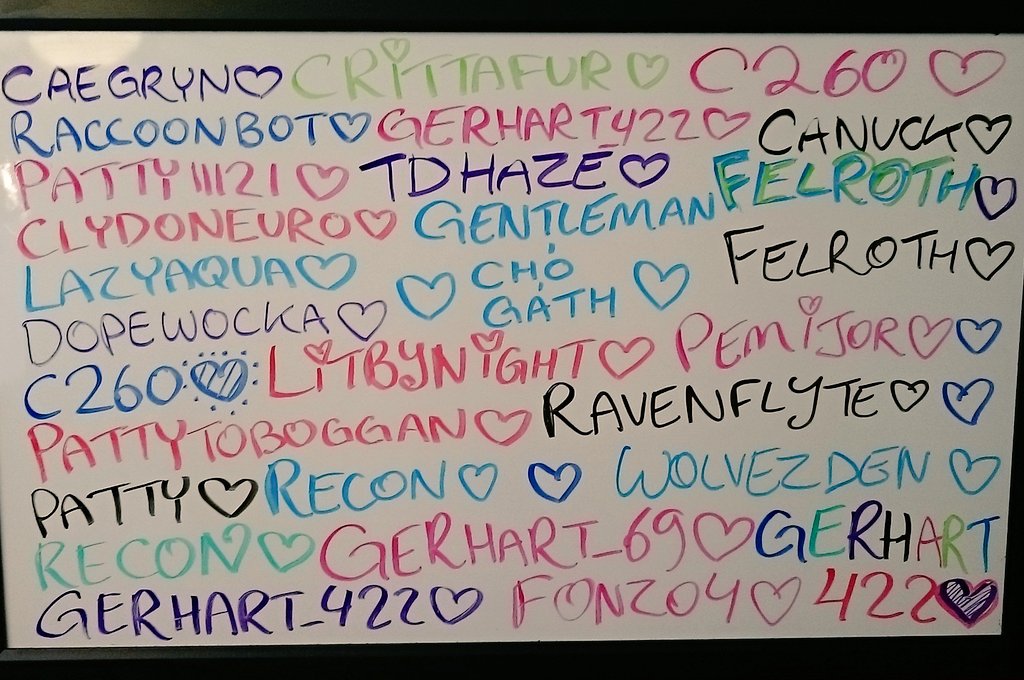 CAEGRYN♡ CRITTAFUR♡ C260♡
RACCOONBOT♡ GERHART_422♡ CANUCK♡
PATTY11121♡ TDHAZE♡ FELROTH♡
CLYDONEURO♡ GENTLEMAN
LAZYAQUA♡ ♡ CHO ♡ FELROTH♡
GATH
DOPEWOCKA♡ PEMIJOR♡♡
C260♡ LITBYNIGHT♡
PATTYTOBOGGAN♡ RAVENFLYTE♡♡
PATTY♡ RECON♡ ♡ WOLVEZDEN♡
RECON♡ GERHART_69♡ GERHART
GERHART_422♡ FONZO4♡ 422♡